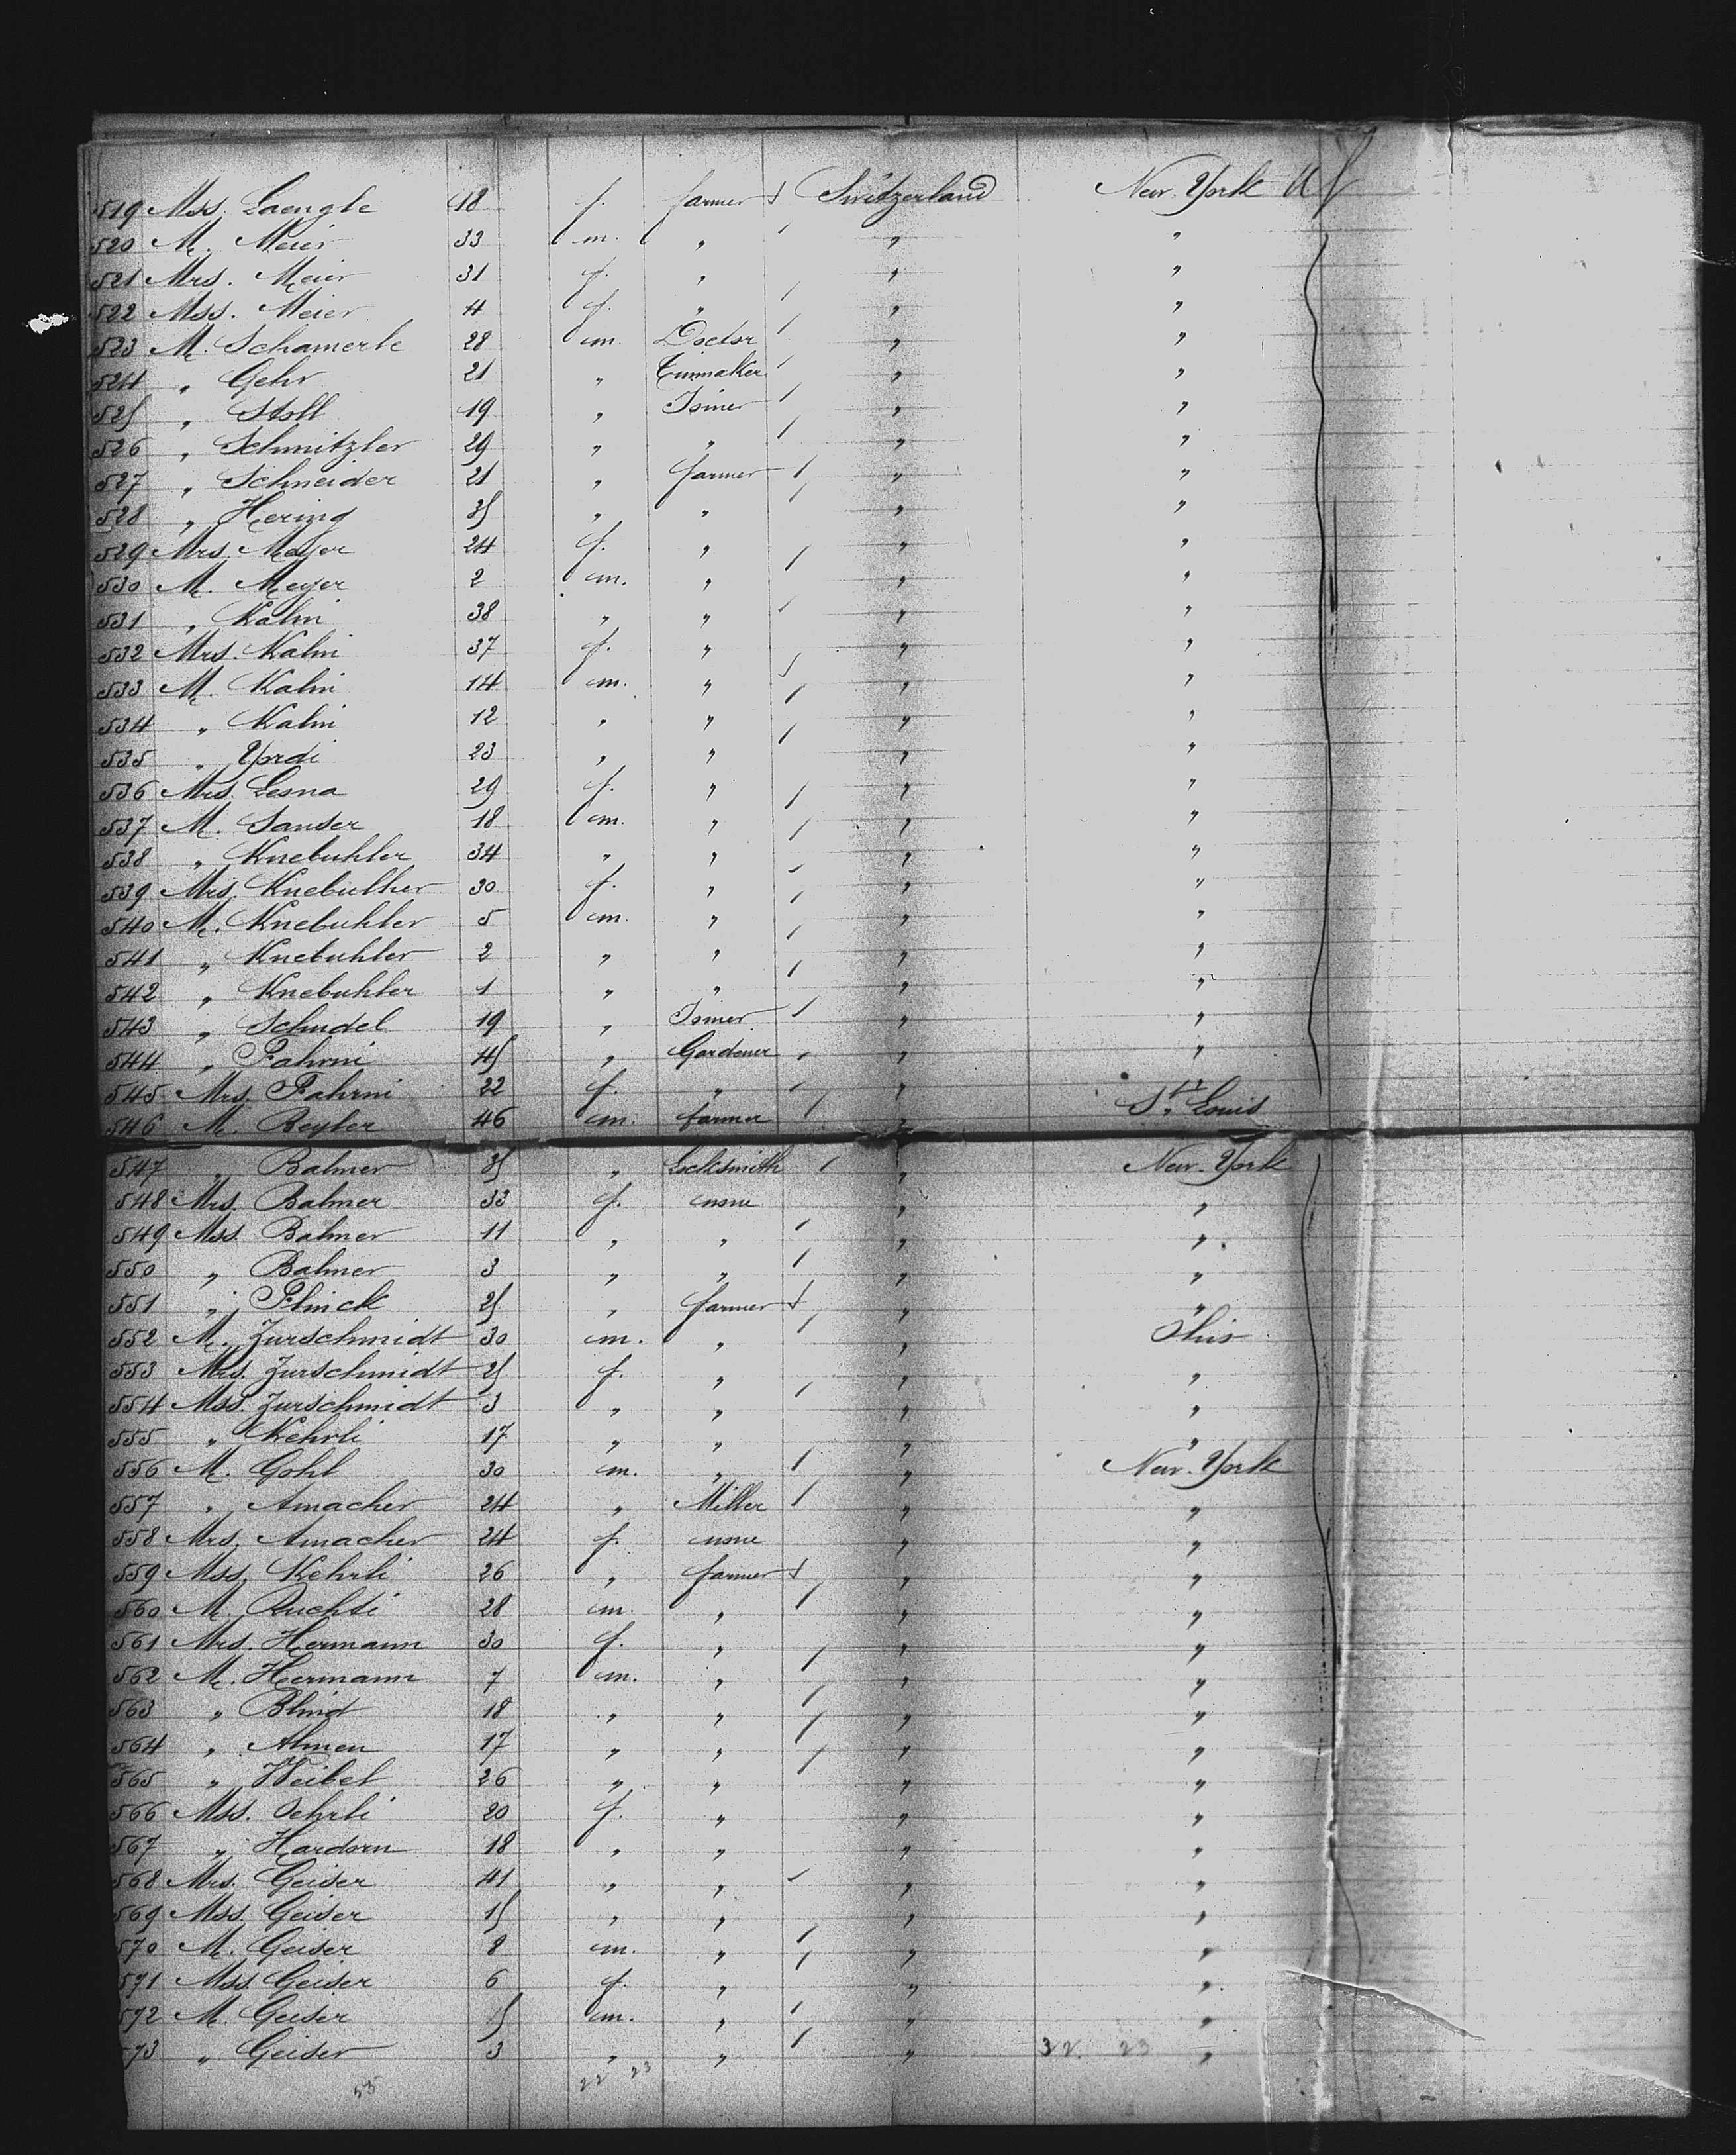 519 Mss. Laengle 18 f. farmer Switzerland New-York
520 M. Meier 33 m. " " "
521 Mrs. Meier 31 f. " " "
522 Mss. Meier 4 f. " " "
523 M. Schamerle 28 m. Doctor " "
524 " Gehr 21 " " "
525 " Stoll 19 " Joiner " "
526 " Schmitzler 29 " " " "
527 " Schneider 21 " farmer " "
528 " Hering 35 " " " "
529 Mrs. Meyer 24 f. " " "
530 M. Meyer 2 m. " " "
531 " Kalin 38 " " " "
532 Mrs. Kalin 37 f. " " "
533 M. Kalin 14 m. " " "
534 " Kalin 12 " " " "
535 " Yordi 23 " " " "
536 Mrs. Lesna 29 f. " " "
537 M. Sanser 18 m. " " "
538 " Knebuhler 34 " " " "
539 Mrs. Knebulher 30 f. " " "
540 M. Knebuhler 5 m. " " "
541 " Knebuhler 2 " " " "
542 " Knebuhler 1 " " " "
543 " Schudel 19 " Joiner " "
544 " Fahrni 45 " Gardener " "
545 Mrs. Fahrni 22 f. " " "
546 M. Beyler 46 m. farmer " St. Louis
547 " Balmer 35 " Locksmith " New-York
548 Mrs. Balmer 33 f. none " "
549 Mss. Balmer 11 " " " "
550 " Balmer 3 " " " "
551 " Flinck 25 " farmer " "
552 M. Zurschmidt 30 m. " " Ohio
553 Mrs. Zurschmidt 25 f. " " "
554 Mss. Zurschmidt 3 " " " "
555 " Kehrli 17 " " " "
556 M. Gohl 30 m. " " New-York
557 " Amacher 24 " Miller " "
558 Mrs. Amacher 24 f. none " "
559 Mss. Kehrli 26 " farmer " "
560 M. Ruchti 28 m. " " "
561 Mrs. Hermann 30 f. " " "
562 M. Hermann 7 m. " " "
563 " Blind 18 " " " "
564 " Almen 17 " " " "
565 " Weibel 26 " " " "
566 Mss. Oehrli 20 f. " " "
567 " Hardorn 18 " " " "
568 Mrs. Geiser 41 " " " "
569 Mss. Geiser 15 " " " "
570 M. Geiser 8 m. " " "
571 Mss. Geiser 6 f. " " "
572 M. Geiser 5 m. " " "
573 " Geiser 3 " " " 32 23 "
55 22 23